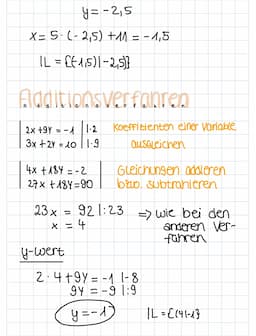 y = -2,5
x = 5 · (-2,5) + 11 = -1,5
𝕃 = {(-1,5)|-2,5)}
Additionsverfahren
2x + 9y = -1 | · 2 Koeffizienten einer Variable
3x + 2y = 10 | · 9 ausgleichen
4x + 18y = -2 Gleichungen addieren
27x + 18y = 90 bzw. subtrahieren
23x = 92 | : 23 => wie bei den
x = 4 anderen Ver-
fahren
y-Wert
2 · 4 + 9y = -1 | -8
9y = -9 | : 9
y = -1 𝕃 = {(4|-1)}